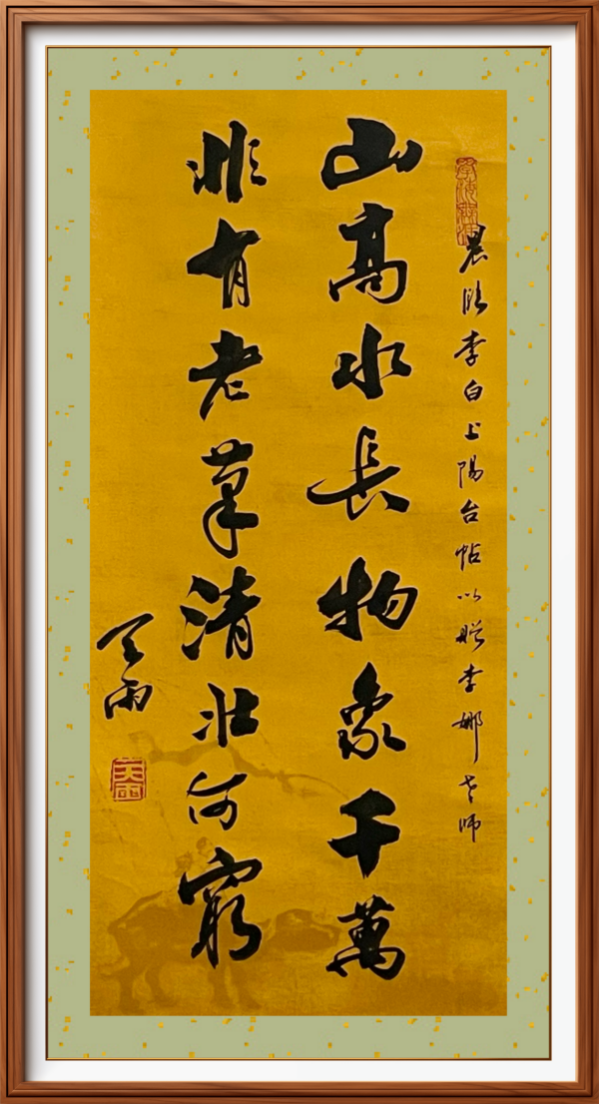 晨临李白上陽台帖以赠李娜老师
山高水長物象千萬
非有老筆清壯何窮
天雨
天雨